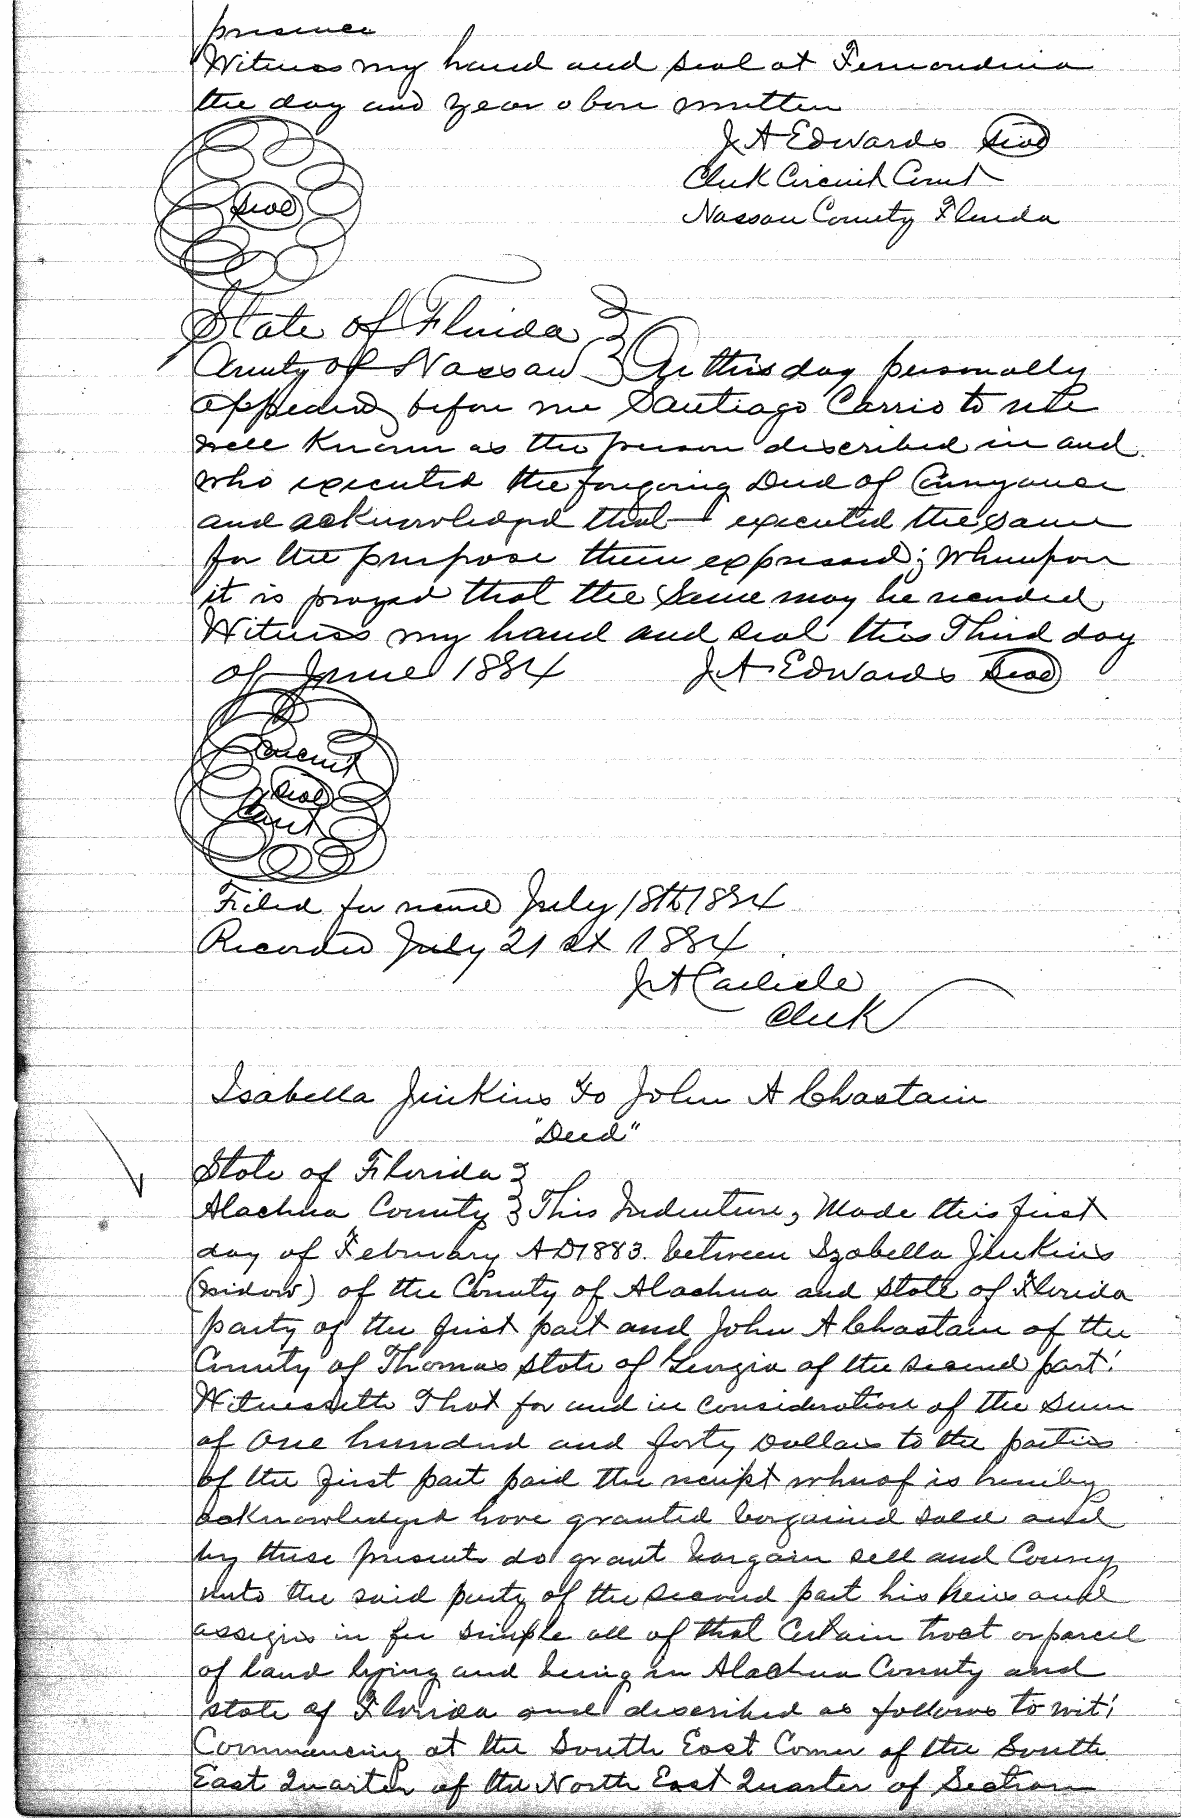 presence
Witness my hand and seal at Fernandina
the day and year above written
J A Edwards Seal
Clerk Circuit Court
Nassau County Florida
Seal
State of Florida
County of Nassau On this day personally
appeared before me Santiago Carrio to me
well known as the person described in and
who executed the foregoing Deed of Conveyance
and acknowledged that executed the same
for the purpose therein expressed; whereupon
it is prayed that the same may be recorded
Witness my hand and seal this Third day
of June 1884 J A Edwards Seal
Circuit
Seal
Court
Filed for record July 18th 1884
Recorded July 21st 1884
J A Carlisle
Clerk
Isabella Jinkins to John A Chastain
"Deed"
State of Florida
Alachua County This Indenture, Made this first
day of February AD 1883. between Izabella Jinkins
(widow) of the County of Alachua and State of Florida
party of the first part and John A Chastain of the
County of Thomas State of Georgia of the second part:
Witnesseth That for and in consideration of the sum
of One hundred and forty Dollars to the parties
of the first part paid the receipt whereof is hereby
acknowledged have granted bargained sold and
by these presents do grant bargain sell and Convey
unto the said party of the second part his heirs and
assigns in fee simple all of that Certain tract or parcel
of land lying and being in Alachua County and
state of Florida and described as follows to wit:
Commencing at the South East Corner of the South
East Quarter of the North East Quarter of Section